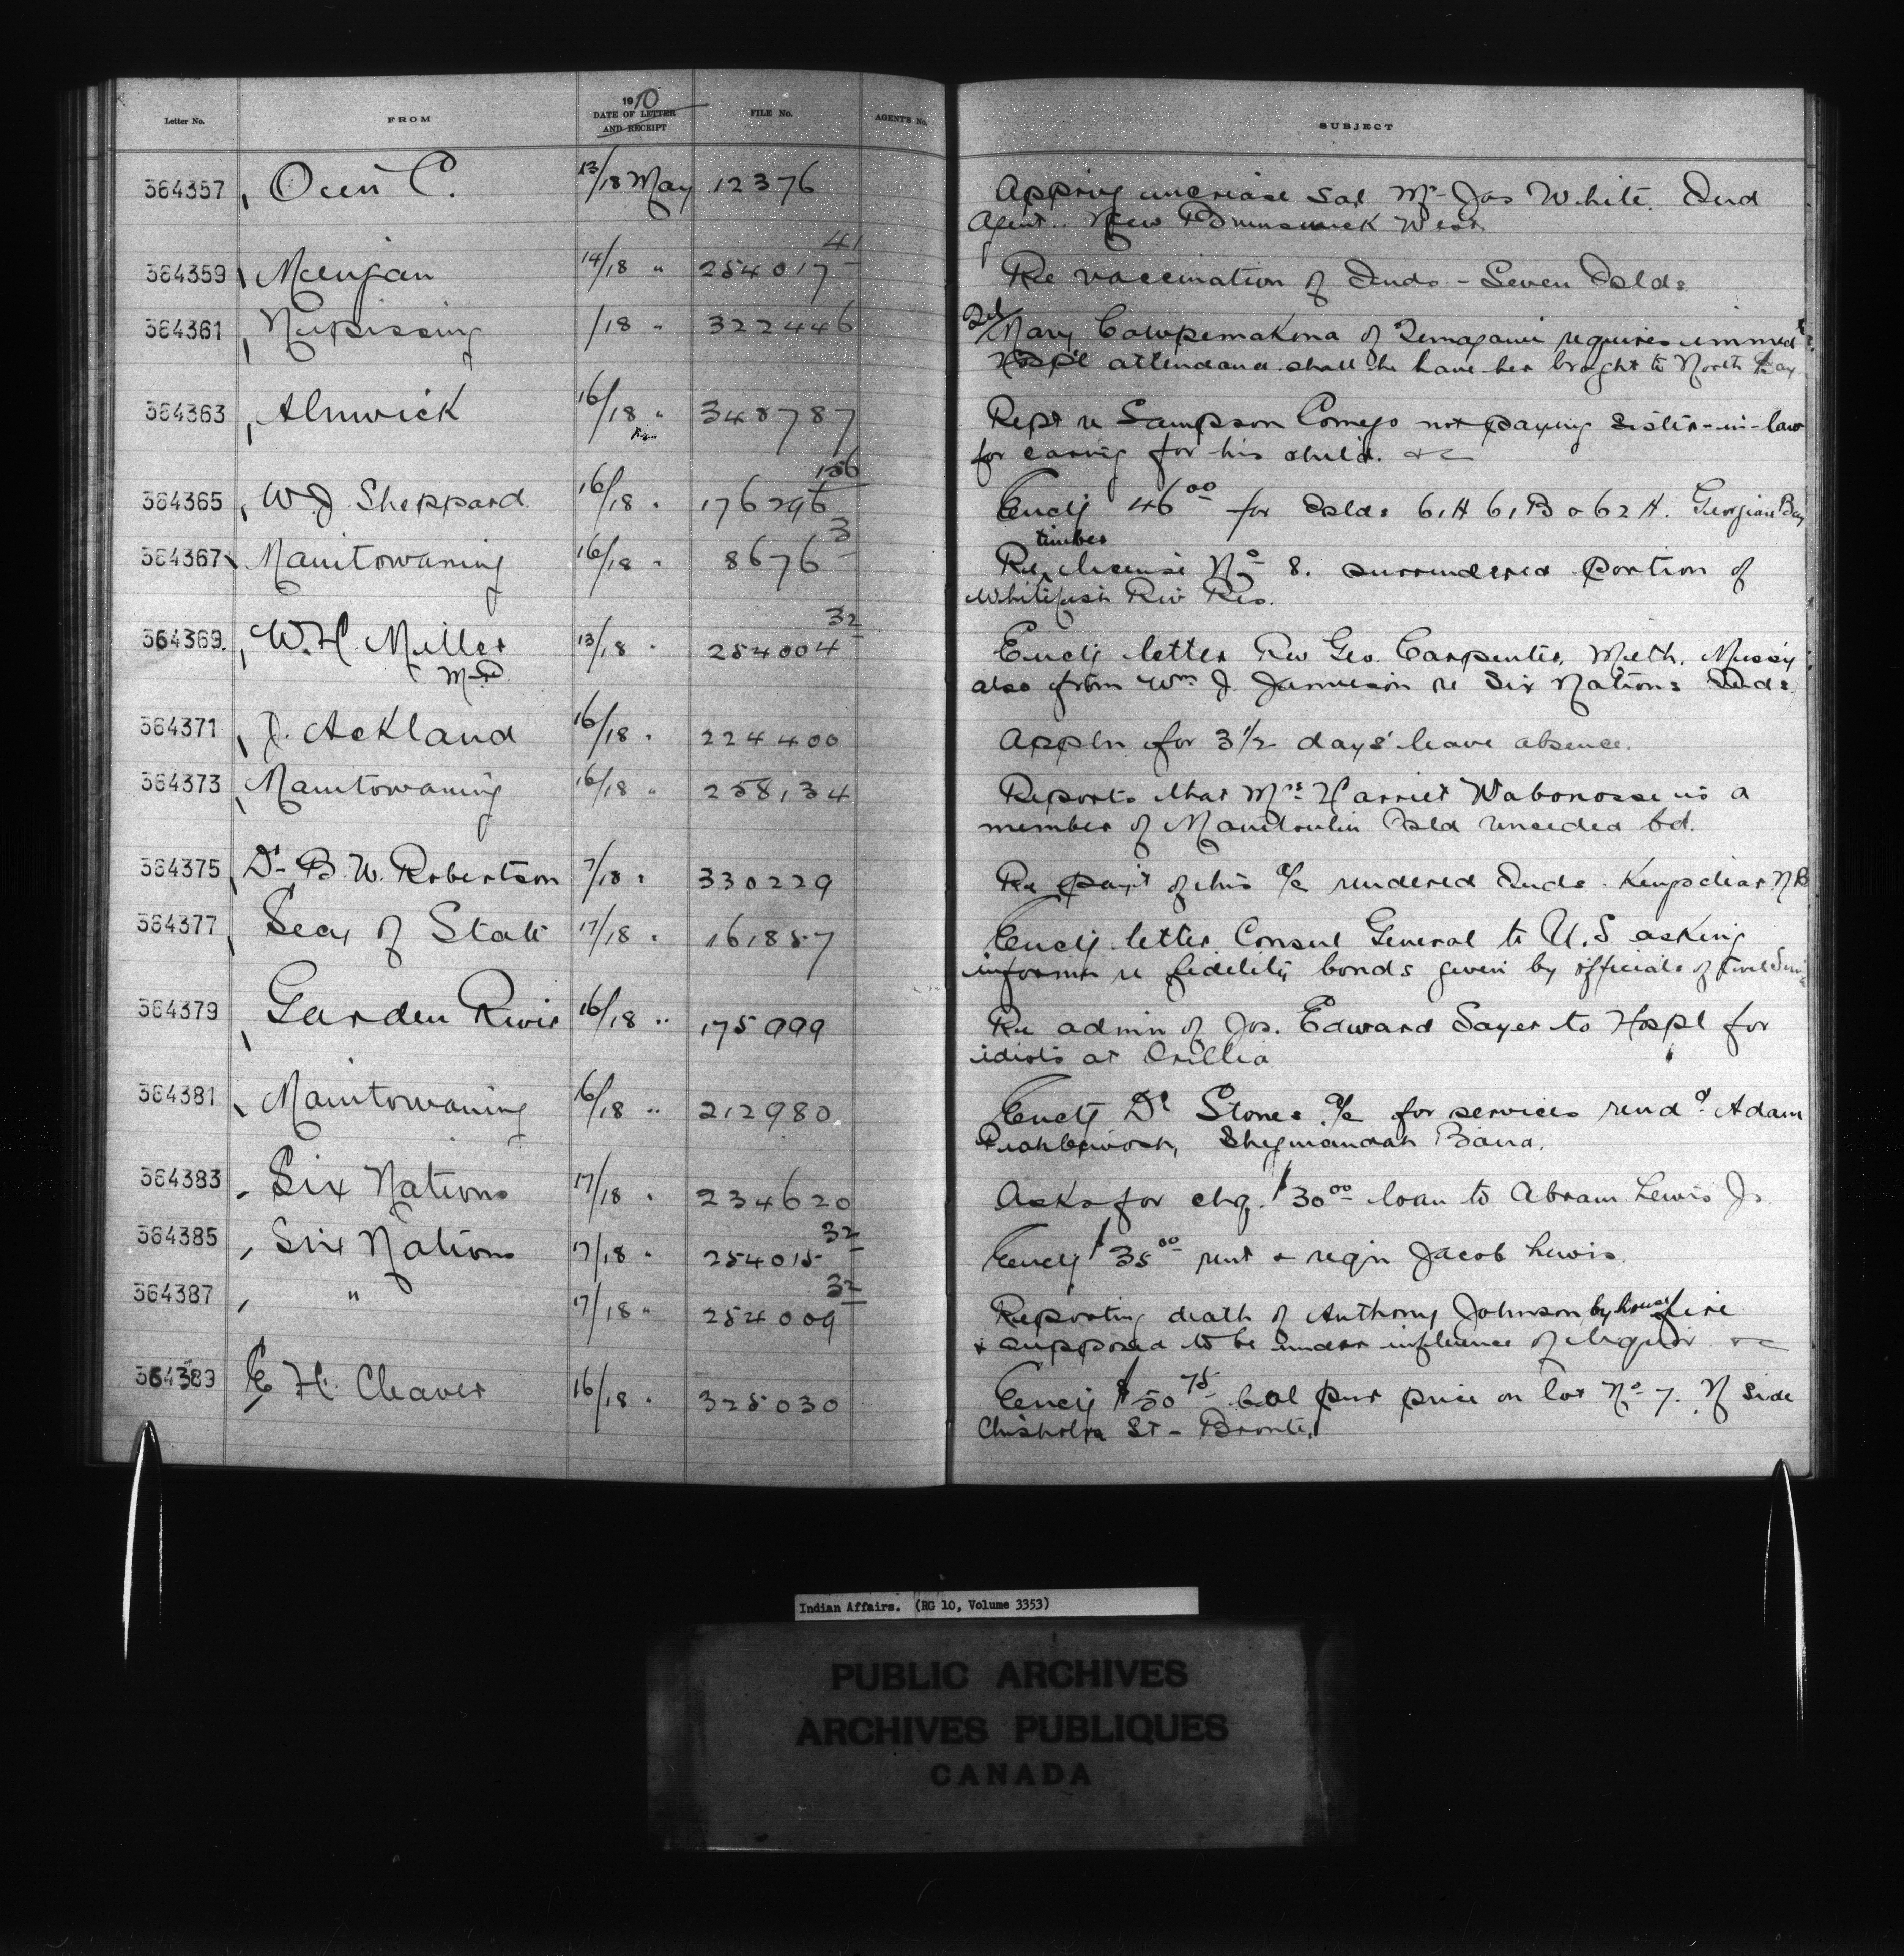 Letter No. FROM 1910 DATE OF LETTER AND RECEIPT FILE No. AGENTS No. SUBJECT
364357 Ouin C. 13/18 May 12376 Approvg increase Sal Mr Jas White. Ind
Agent.. New Brunswick West.
364359 Mingan 14/18 " 254017 41 Re vaccination of Inds - Seven Islds
364361 Nipissing /18 " 322446 Tel Mary Cawpemakona of Temagami requires immedt
Hospl attendance shall he have her brought to North Bay
364363 Alnwick 16/18 " 348787 Rept re Sampson Comego not paying sister-in-law
for caring for his child. &c
364365 W J Sheppard 16/18 " 176296 156 Enclg 46 00 for Islds 61A 61B & 62A. Georgian Bay
364367 Manitowaning 16/18 " 8676 3 Re timber license No 8. surrendered portion of
Whitefish Riv Res.
364369. W. H. Miller M.D. 13/18 " 254004 32 Enclg letter Rev Geo. Carpenter, Meth. Missy
also from Wm J. Jamieson re Six Nations Inds
364371 J. Ackland 16/18 " 224400 Appln for 3 1/2 days' leave absence.
364373 Manitowaning 16/18 " 258134 Reports that Mrs Harriet Wabonosse is a
member of Manitoulin Isld unceded bd.
364375 Dr B. W. Robertson 7/18 " 330229 Re payt of his a/c rendered Inds. Kingsclear N B
364377 Secy of State 17/18 " 161857 Enclg letter Consul General to U.S asking
informn re fidelity bonds given by officials of Civil Servi
364379 Garden River 16/18 " 175999 Re admn of Jos. Edward Sayer to Hospl for
idiots at Orillia
364381 Manitowaning 16/18 " 212980 Enclg Dr Stones a/c for services rend d. Adam
Sheguiandah Band.
364383 Six Nations 17/18 " 234620 Asks for chq. $30 00 loan to Abram Lewis Jr.
364385 Six Nations 17/18 " 254015 32 Enclg $35 00 rent & regn Jacob Lewis.
364387 " 17/18 " 254009 32 Reporting death of Anthony Johnson by house fire
& supposed to be under influence of liquor &c
364389 E H. Cleaver 16/18 " 325030 Enclg $50 75 bal pur price on lot No 7. N side
Chisholm St - Bronte.
Indian Affairs. (RG 10, Volume 3353)
PUBLIC ARCHIVES
ARCHIVES PUBLIQUES
CANADA